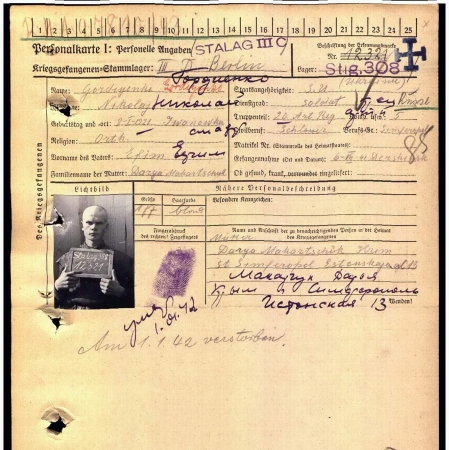 1 2 3 4 5 6 7 8 9 10 11 12 13 14 15 16 17 18 19 20 21 22 23 24 25
Personalkarte I: Personelle Angaben
STALAG III C
Beschriftung der Erkennungsmarke
Nr. 12321
Kriegsgefangenen-Stammlager: III D Berlin
Lager: Stlg. 308
Гордиенко
Name: Gordigenko
Staatsangehörigkeit:
Vorname: Nikolaj Николай
Dienstgrad: soldat
Geburtstag und -ort:
Truppenteil: 20 Art. Reg.
Religion: Orth.
Zivilberuf: Schlosser Berufs-Gr.:
Matrikel Nr. (Stammrolle des Heimatstaates):
Vorname des Vaters: Efim Ефим
Gefangennahme (Ort und Datum):
Familienname der Mutter: Darya Mahartschuk
Ob gesund, krank, verwundet eingeliefert:
Des Kriegsgefangenen
Lichtbild
Nähere Personalbeschreibung
Größe Haarfarbe Besondere Kennzeichen:
177 blond
Stalag III
12321
Fingerabdruck
des rechten Zeigefingers
Name und Anschrift der zu benachrichtigenden Person in der Heimat
des Kriegsgefangenen
Mutter
Darya Mahartschuk Krim
st. Simferopol Estonskaya 13
Макарчук Дарья
Крым г. Симферополь
Эстонская 13 Wenden!
умер
1.01.42
Am 1.1.42 verstorben.